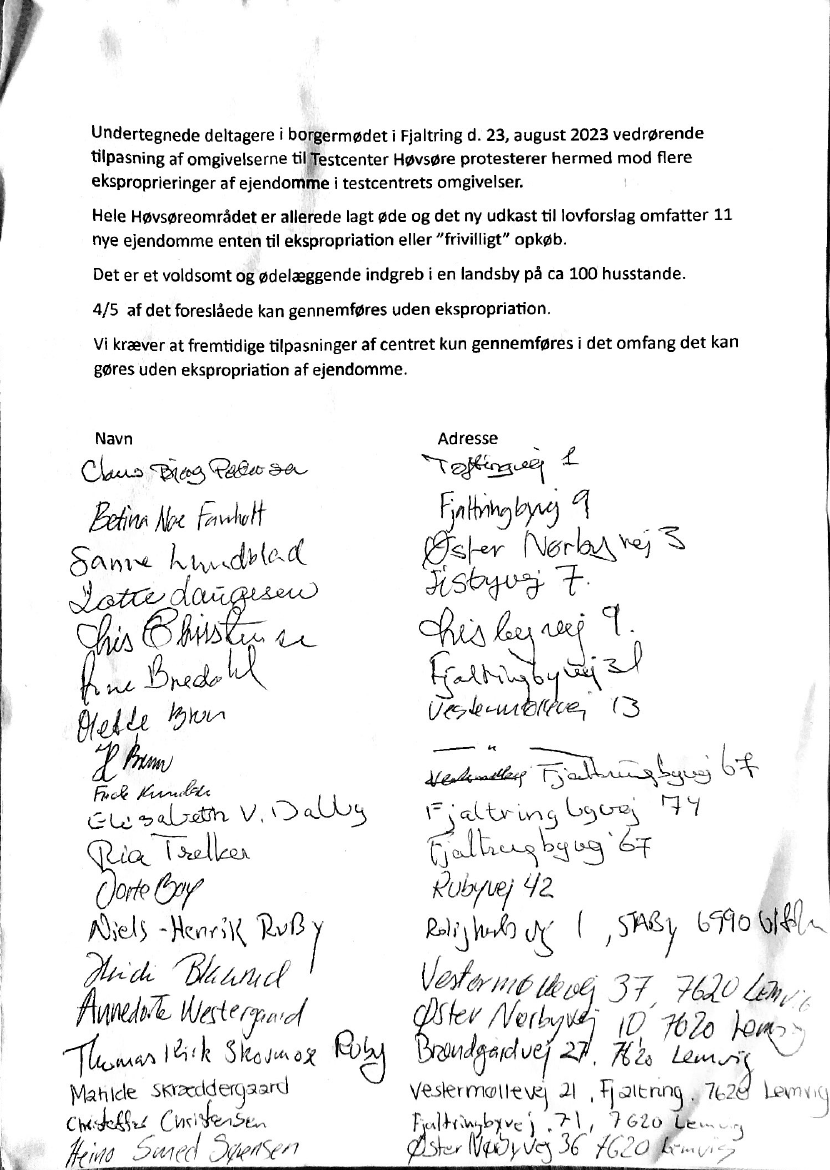 Undertegnede deltagere i borgermødet i Fjaltring d. 23, august 2023 vedrørende
tilpasning af omgivelserne til Testcenter Høvsøre protesterer hermed mod flere
eksproprieringer af ejendomme i testcentrets omgivelser.
Hele Høvsøreområdet er allerede lagt øde og det ny udkast til lovforslag omfatter 11
nye ejendomme enten til ekspropriation eller ”frivilligt” opkøb.
Det er et voldsomt og ødelæggende indgreb i en landsby på ca 100 husstande.
4/5 af det foreslåede kan gennemføres uden ekspropriation.
Vi kræver at fremtidige tilpasninger af centret kun gennemføres i det omfang det kan
gøres uden ekspropriation af ejendomme.
Navn Adresse
Claus Bjerg Pedersen 1
Betina Noe Fjaltringbyvej 9
Sanne Lundblad Øster Nørbyvej 3
Lotte Laugesen 7.
Chris Christensen 9.
Bredahl Fjaltringbyvej 31
Brun Vestermøllevej 13
Brun — " —
Fjaltringbyvej 67
Elisabeth V. Dalby Fjaltringbyvej 74
Ria Trelker Fjaltringbyvej 67
Dorte Boy Rubyvej 42
Niels-Henrik Ruby 1, STABY 6990
Heidi Vestermøllevej 37, 7620 Lemvig
Annedorte Westergaard Øster Nørbyvej 10, 7620 Lemvig
Thomas Kirk Ruby Brøndgårdvej 27. 7620 Lemvig
Matilde Skræddergaard Vestermøllevej 21, Fjaltring, 7620 Lemvig
Christoffer Christensen Fjaltringbyvej 71, 7620 Lemvig
Heino Smed Sørensen Øster Nørbyvej 36 7620 Lemvig